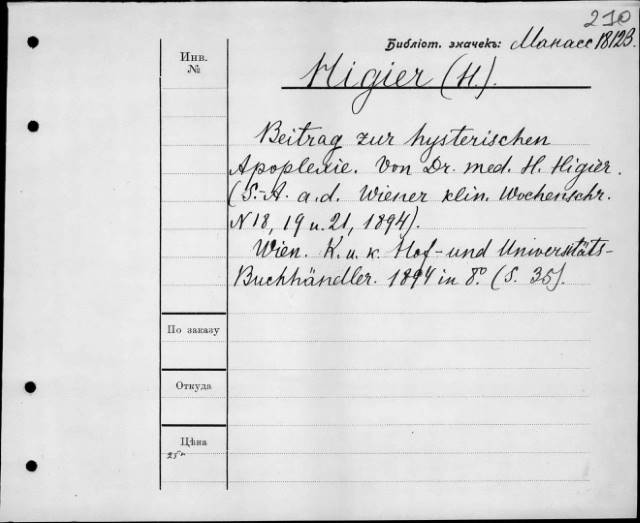 210
Библіот. значекъ: Манасс 18123.
Инв.
№
Higier (H.).
Beitrag zur hysterischen
Apoplexie. Von Dr. med. H. Higier.
(S.-A. a. d. Wiener klin. Wochenschr.
N 18, 19 u. 21, 1894).
Wien. K. u. k. Hof- und Universitäts-
Buchhändler. 1894 in 8º (S. 35).
По заказу
Откуда
Цѣна